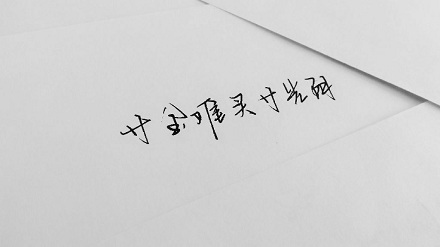 寸金唯买寸光阴